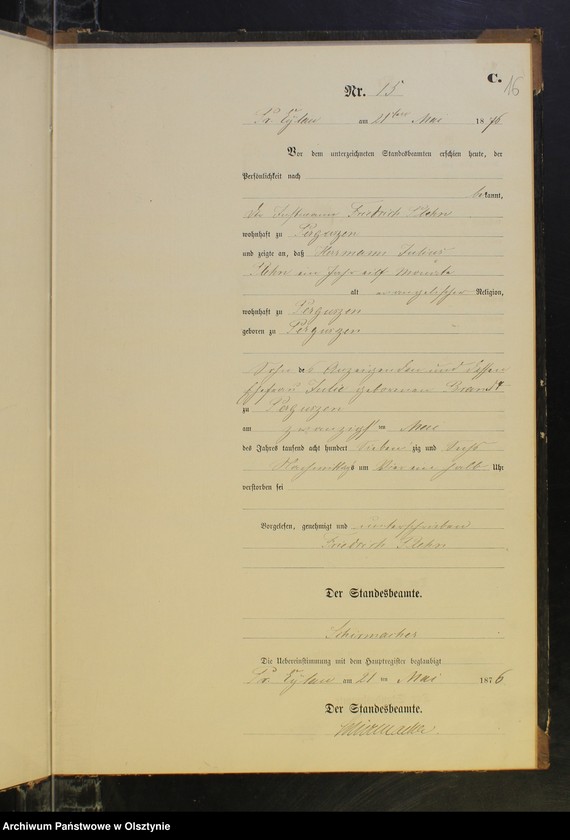 C.
16
Nr. 15
Pr. Eylau am 21ten Mai 1876
Vor dem unterzeichneten Standesbeamten erschien heute, der
Persönlichkeit nach
bekannt,
der Friedrich
wohnhaft zu Perguszen
und zeigte an, daß Hermann Julius
ein Jahr elf Monate
alt evangelischer Religion,
wohnhaft zu Perguszen
geboren zu Perguszen
Sohn des Anzeigenden und dessen
Ehefrau Julie geborenen Brandt
zu Perguszen
am zwanzigsten Mai
des Jahres tausend acht hundert siebenzig und sechs
Nachmittags um Vier ein halb Uhr
verstorben sei
Vorgelesen, genehmigt und unterschrieben
Friedrich
Der Standesbeamte.
Schumacher
Die Uebereinstimmung mit dem Hauptregister beglaubigt
Pr. Eylau am 21ten Mai 1876
Der Standesbeamte.
Schumacher.
Archiwum Państwowe w Olsztynie